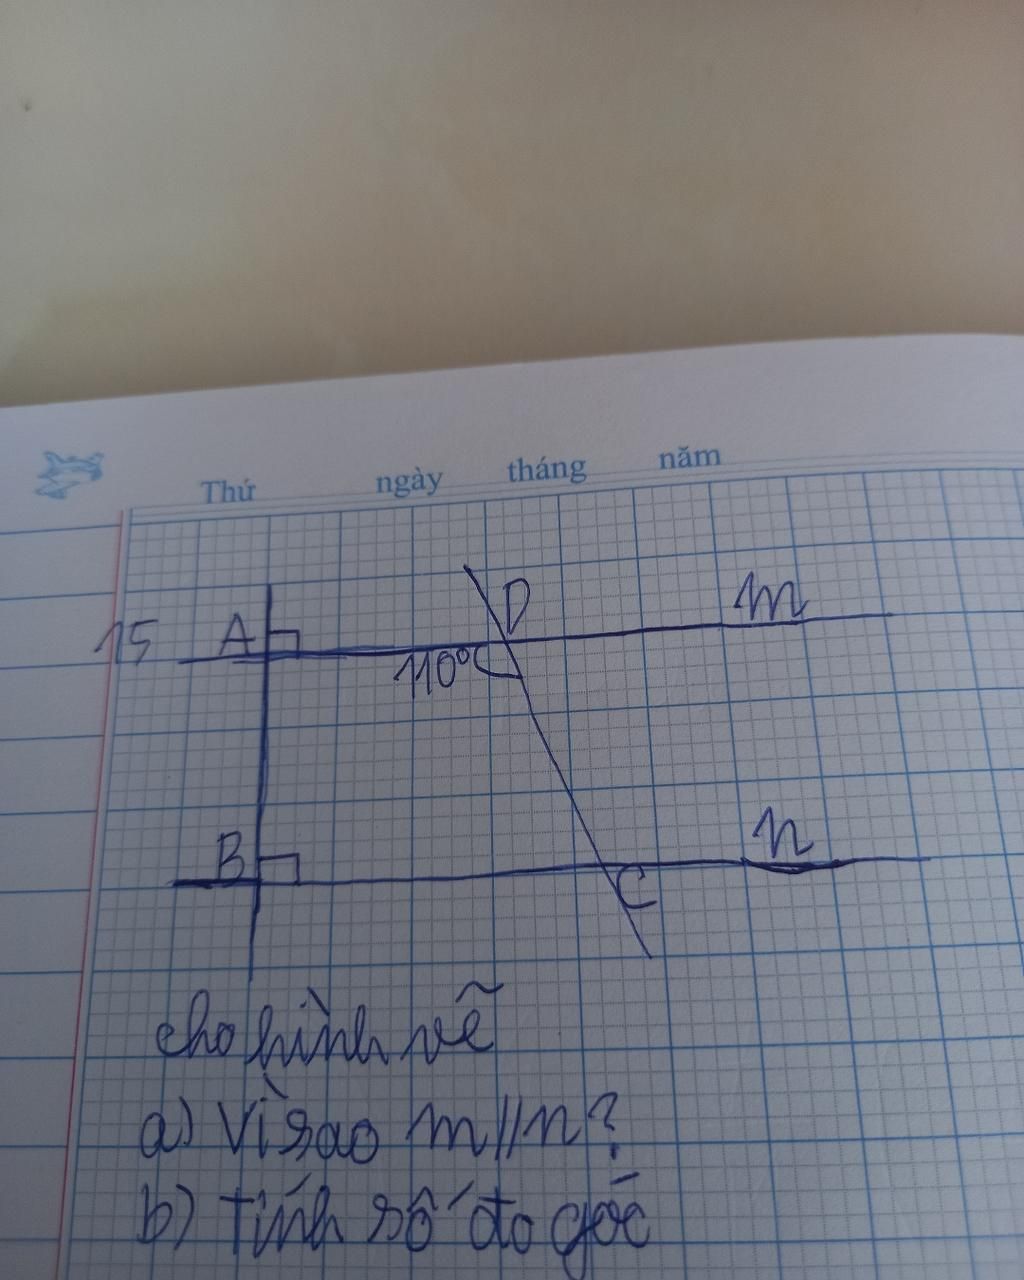 Thứ ngày tháng năm
15
A
D
m
110°
B
n
C
cho hình vẽ
a) Vì sao m//n?
b) tính số đo góc